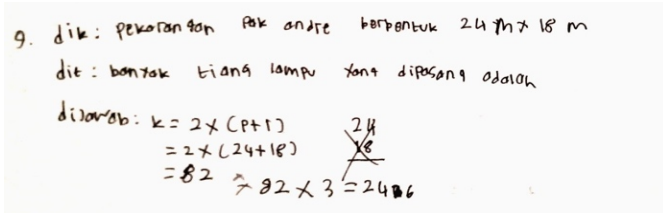 9. dik : pekarangan Pak andre berbentuk 24 m x 18 m
dit : banyak tiang lampu yang dipasang adalah
dijawab : k = 2 x (p+l)
= 2 x (24+18)
= 82 → 82 x 3 = 246
24
18